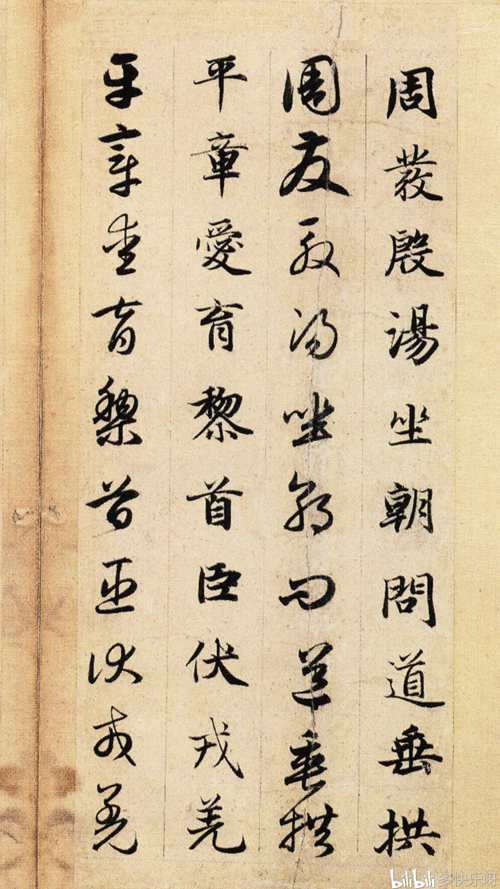 周發殷湯坐朝問道垂拱
周發殷湯坐朝問道垂拱
平章愛育黎首臣伏戎羌
平章愛育黎首臣伏戎羌
bilibili